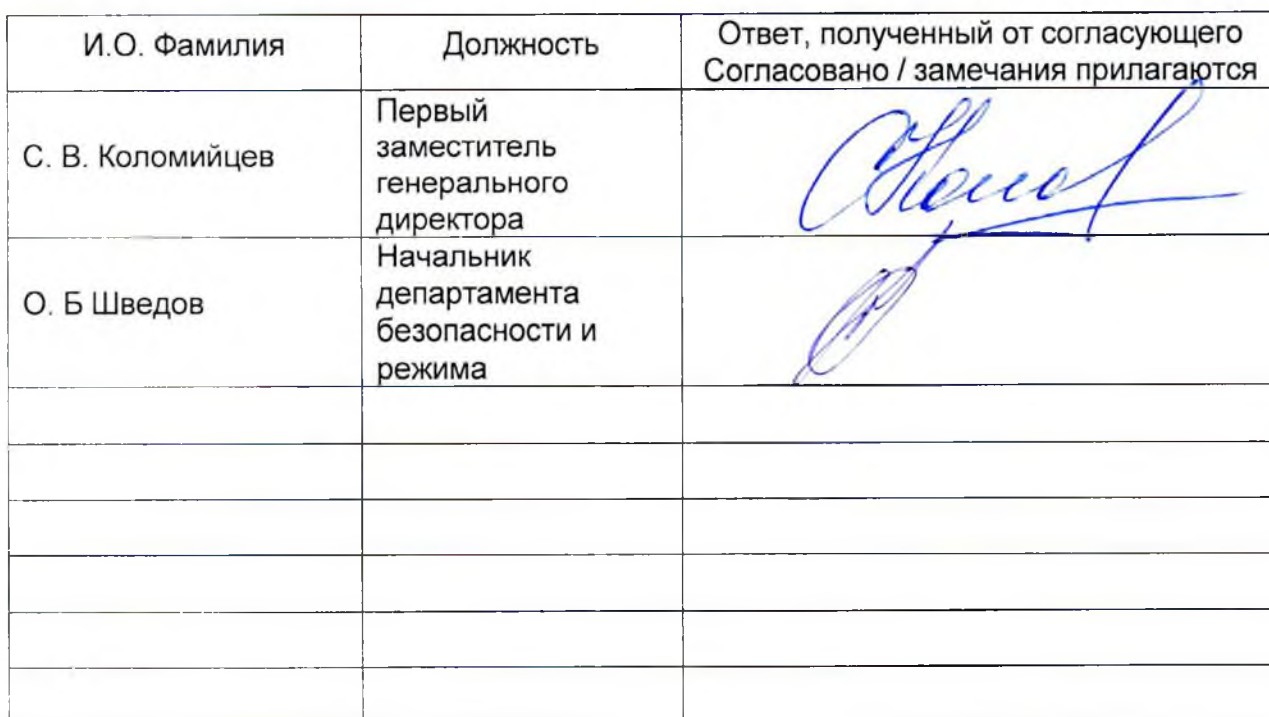 И.О. Фамилия
Должность
Ответ, полученный от согласующего
Согласовано / замечания прилагаются
С. В. Коломийцев
Первый
заместитель
генерального
директора
О. Б Шведов
Начальник
департамента
безопасности и
режима